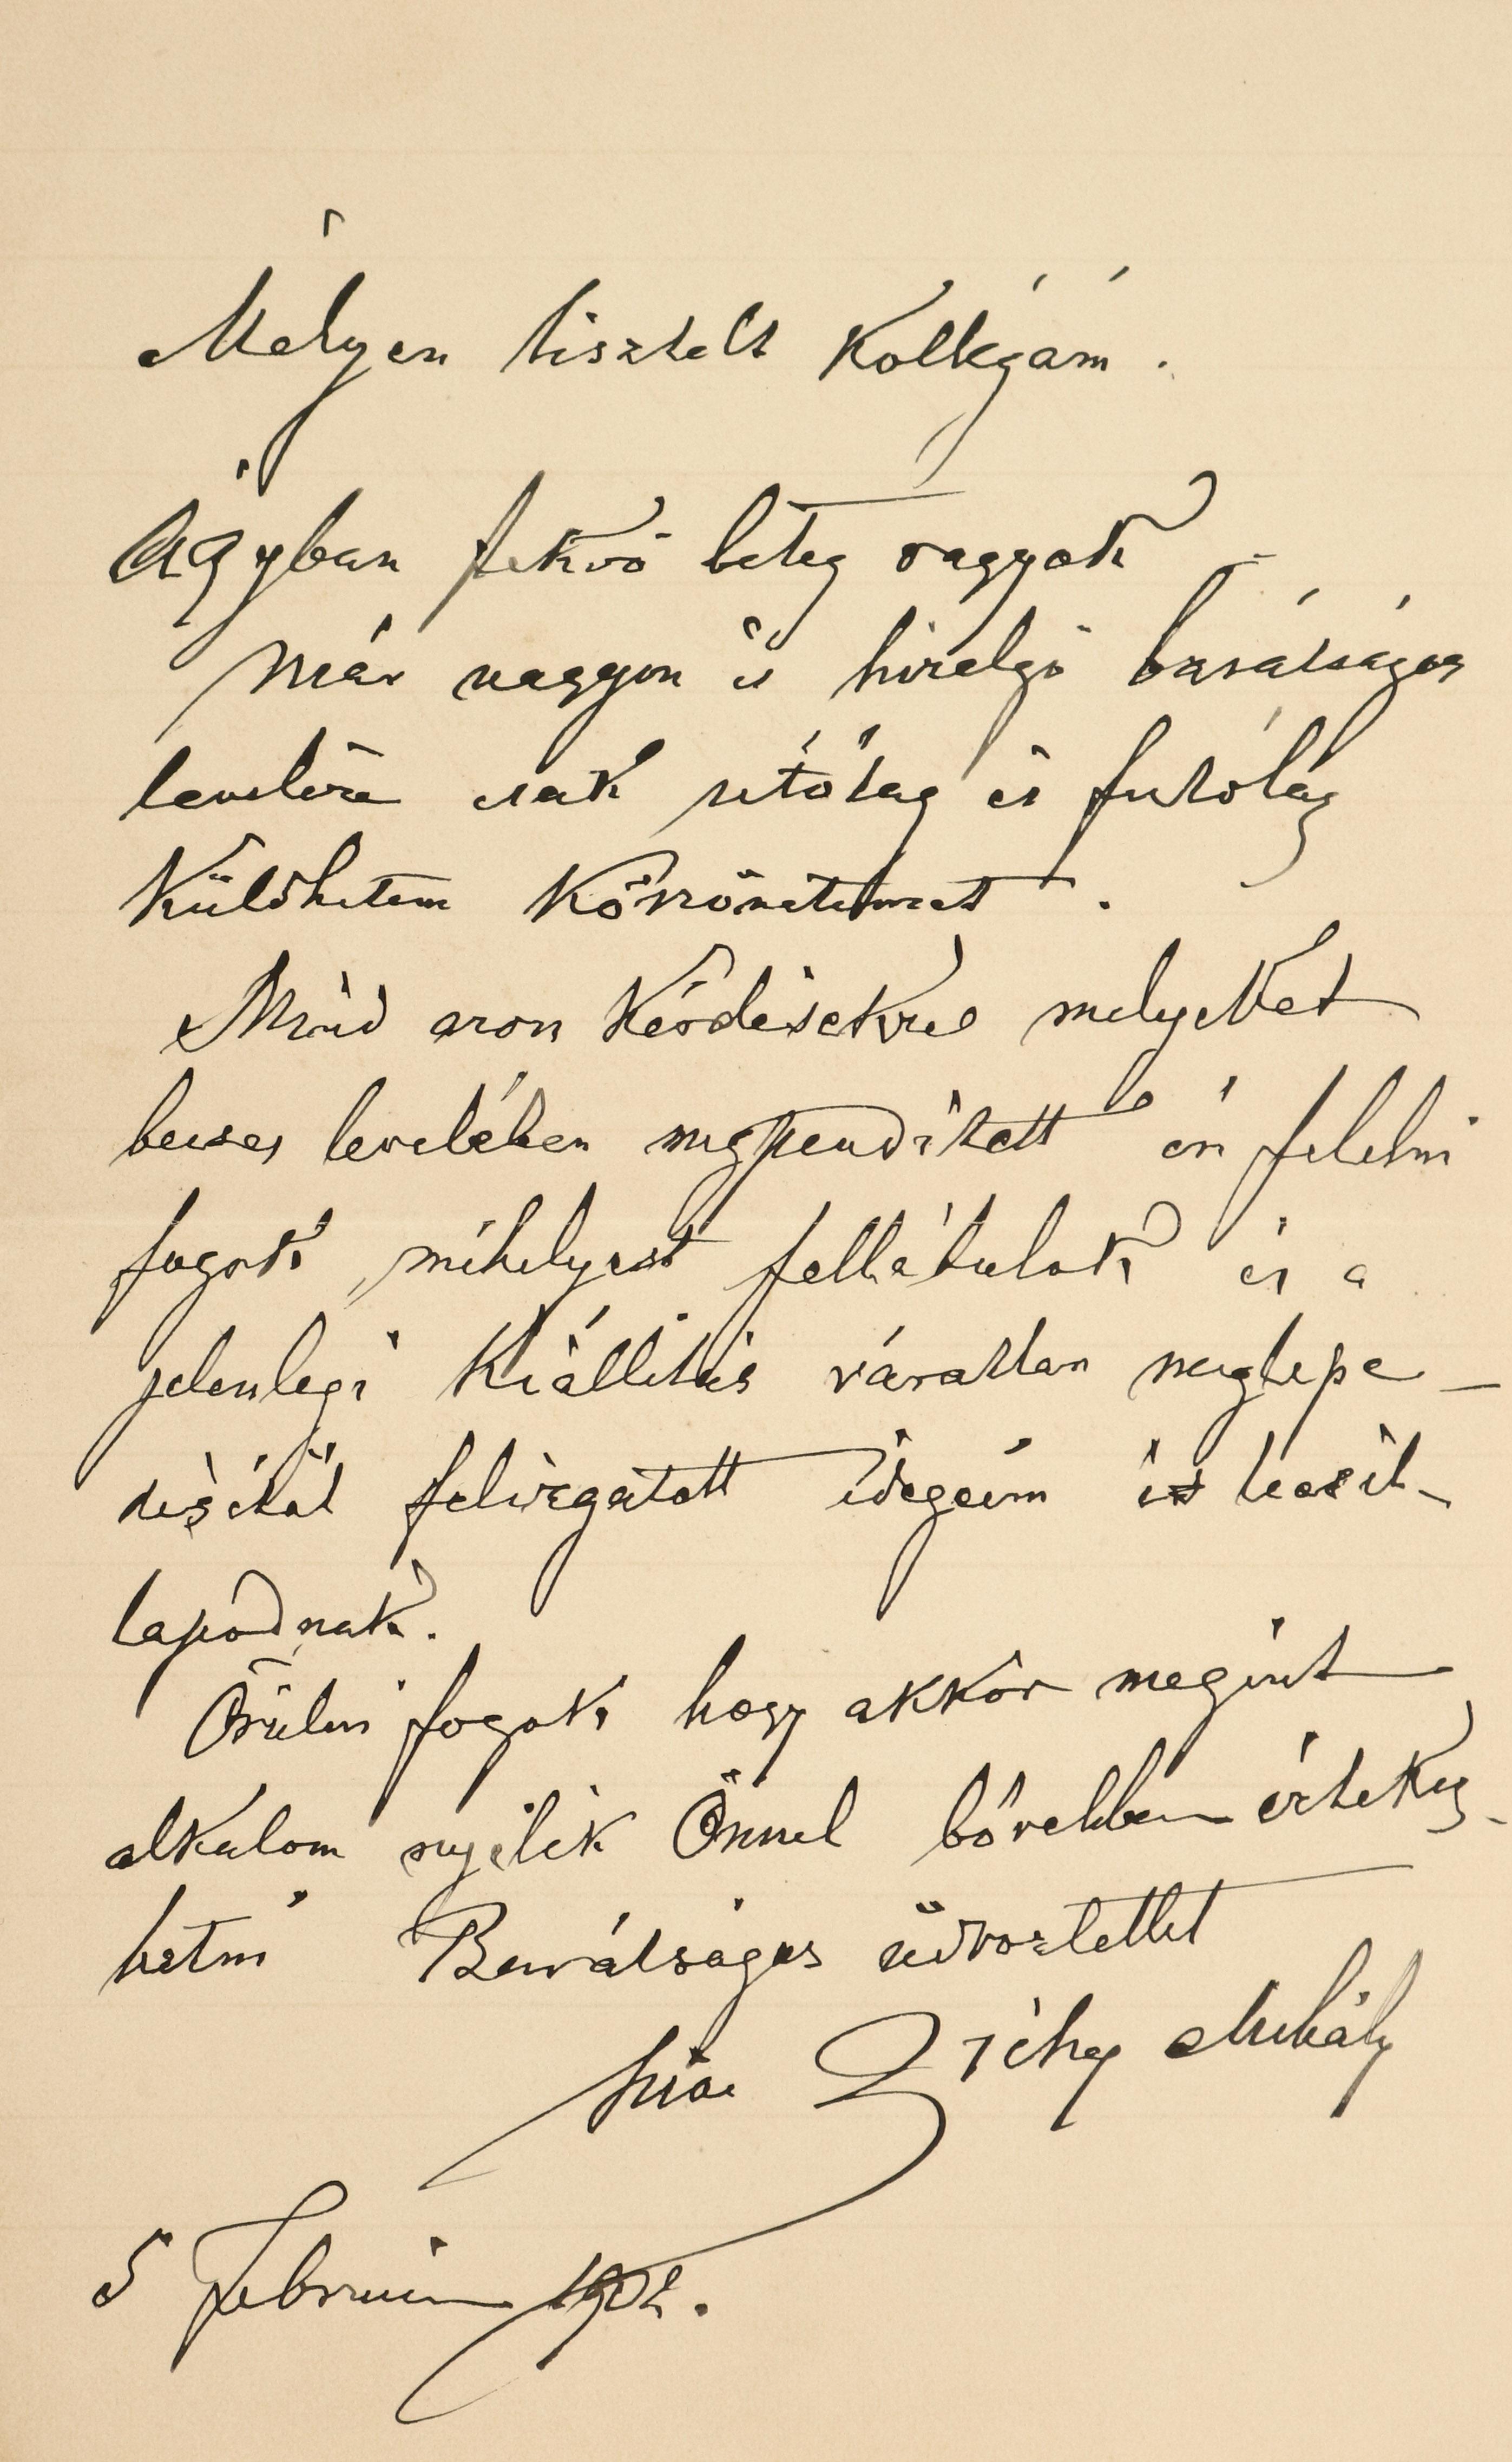 Mélyen tisztelt Kollégám.
Ágyban fekvő beteg vagyok –
Már nagyon is hizelgő barátságos
levelére csak utólag és futólag
Küldhetem Köszönetemet.
Mind azon Kérdésekre melyeket
becses levelében megpendített én felelni
fogok mihelyest fellábulok és a
jelenlegi Kiállítás váratlan meglepe-
désétől felizgatott idegeim is lecsil-
lapodnak.
Örülni fogok hogy akkor megint
alkalom nyílik Önnel bővebben értekez-
hetni Barátságos üdvözlettel
híve Zichy Mihály
5 Február 1902.